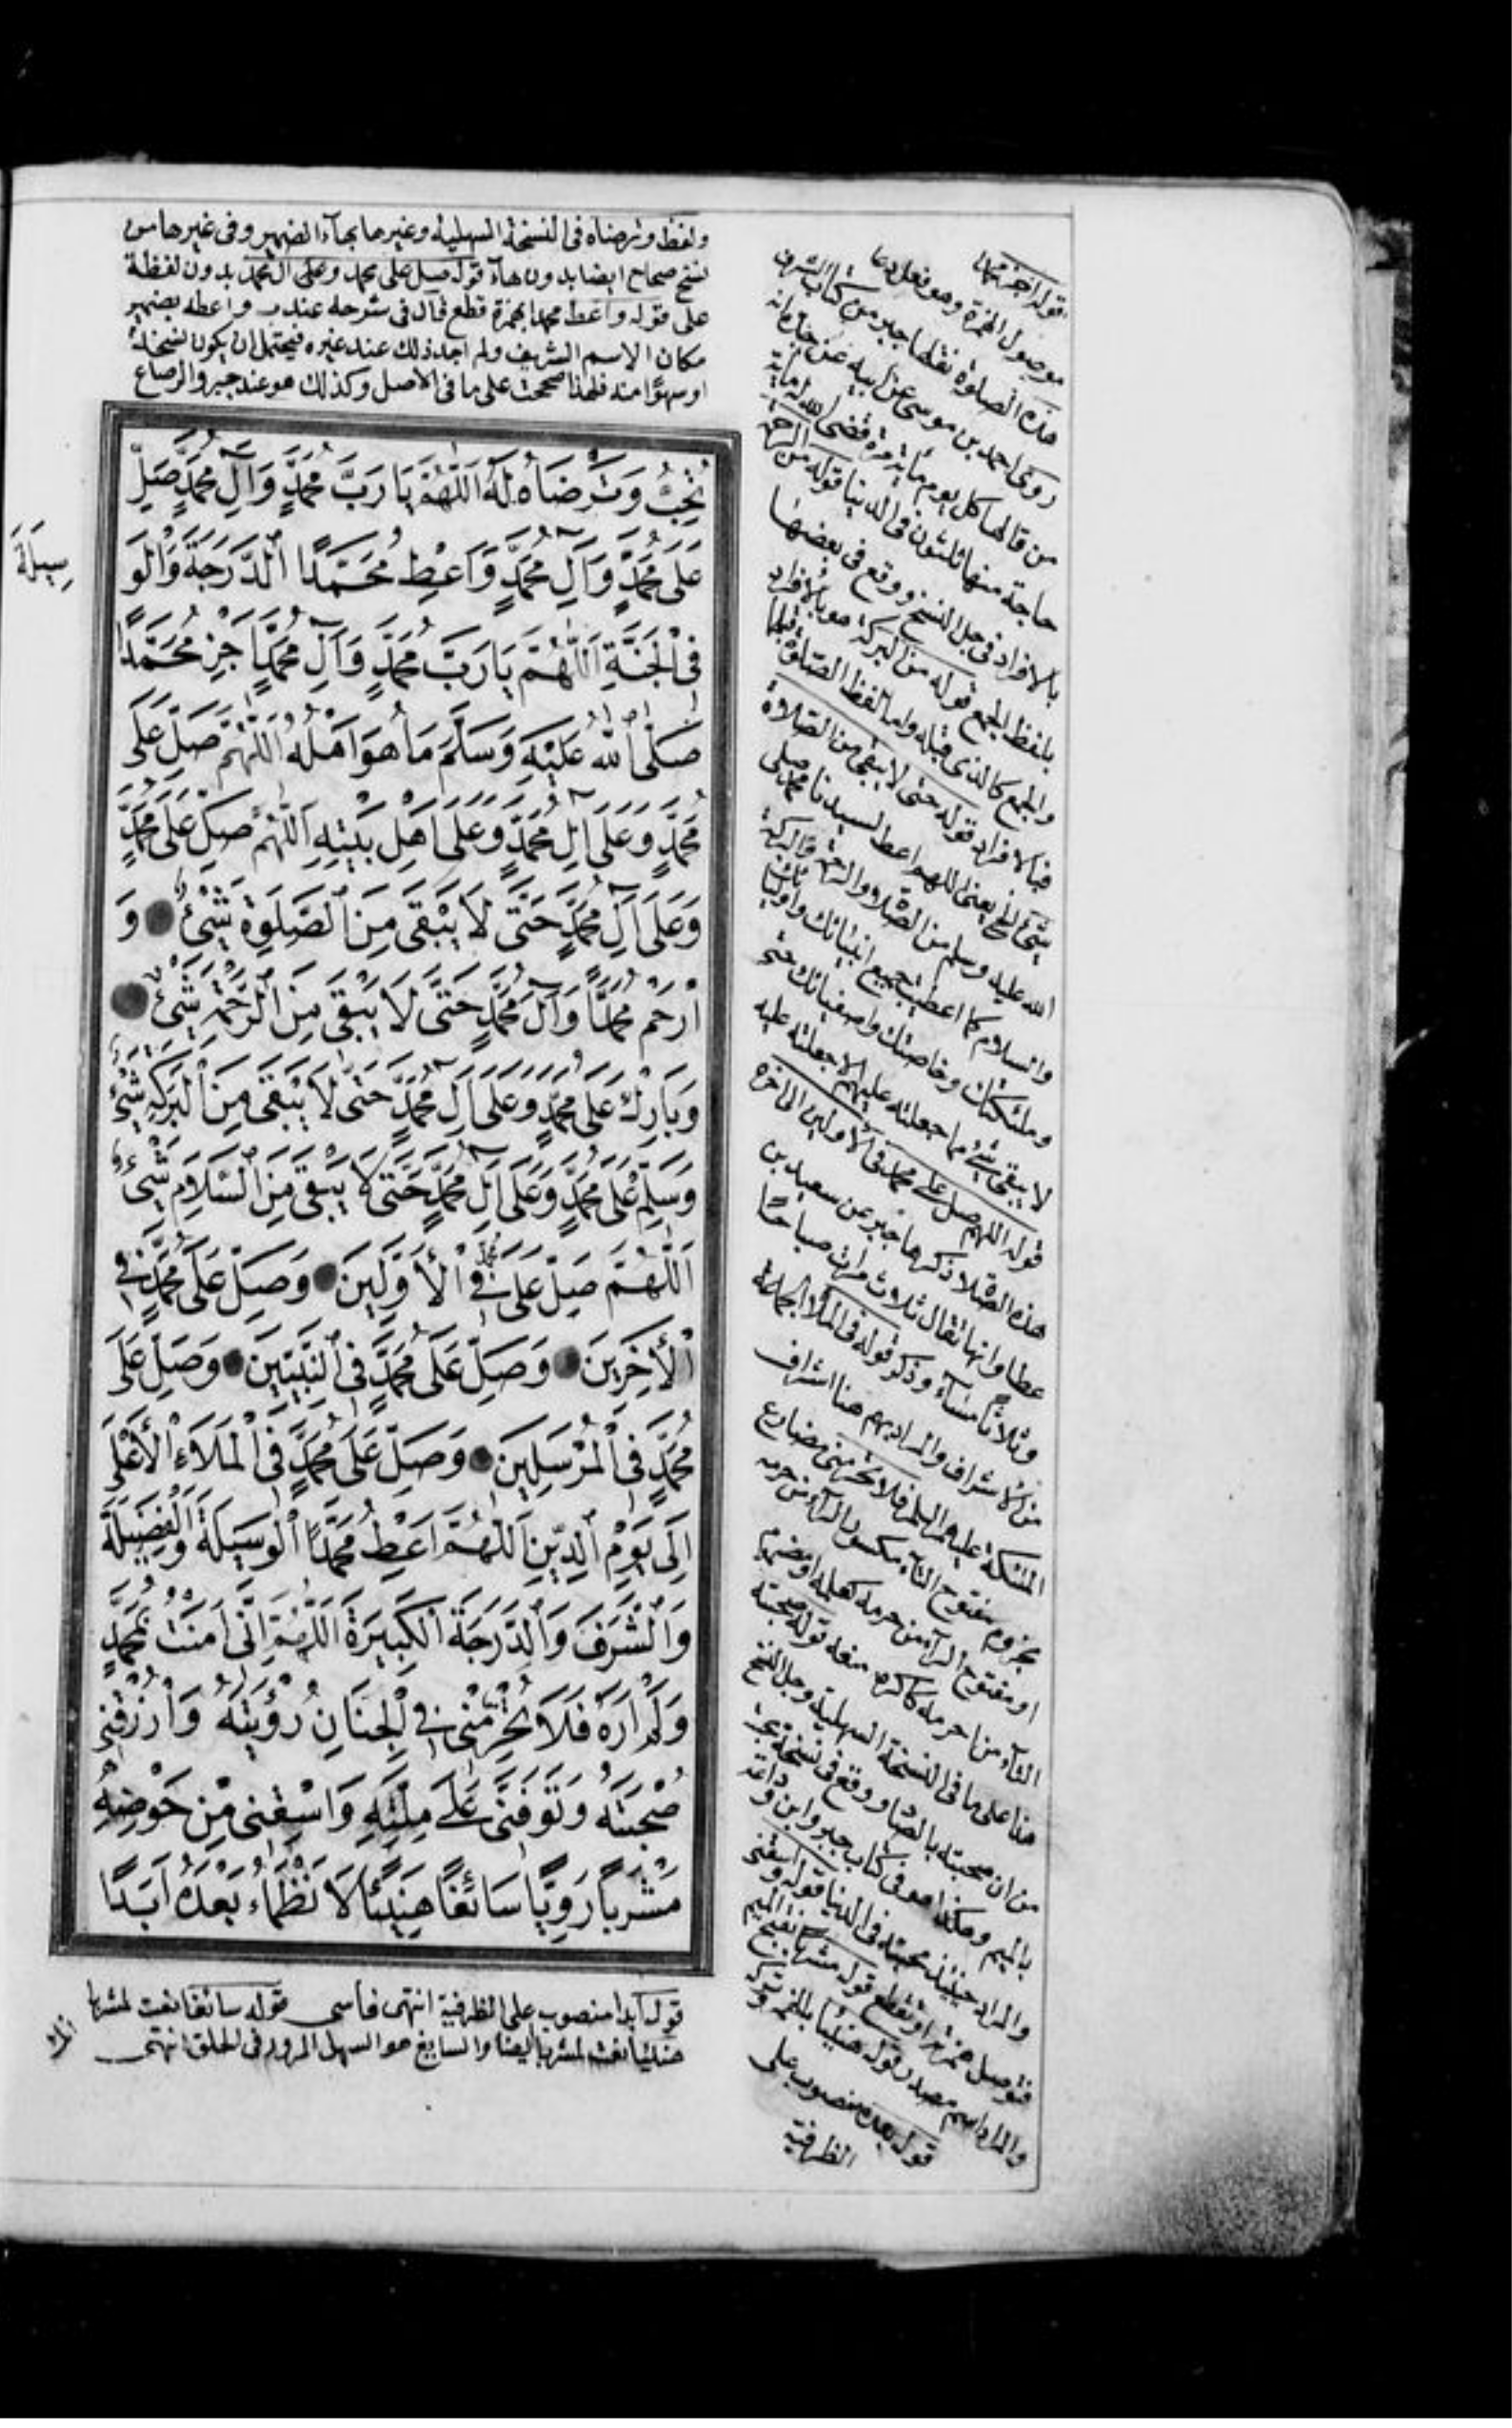 ولفظ وترضاه فى النسخة السهلية وغيرها بهاء الضمير وفى غيرها من
نسخ صحاح ايضا بدون هاء قوله صل على محمد وعلى ال محمد بدون لفظة
على قوله واعط محمدا بهمزة قطع قال فى شرحه عند واعطه بضمير
مكان الاسم الشريف ولم اجد ذلك عند غيره فيحتمل ان يكون نسخة
او سهوا منه فلهذا صححت على ما فى الاصل وكذلك هو عند جبر والرصاع
تُحِبُّ وَتَرْضَاهُ لَهُ اَللّٰهُمَّ يَا رَبَّ مُحَمَّدٍ وَآلِ مُحَمَّدٍ صَلِّ
عَلَى مُحَمَّدٍ وَآلِ مُحَمَّدٍ وَاَعْطِ مُحَمَّدًا الدَّرَجَةَ وَالْوَ
سِيلَةَ
فِى الْجَنَّةِ اَللّٰهُمَّ يَا رَبَّ مُحَمَّدٍ وَآلِ مُحَمَّدٍ اجْزِ مُحَمَّدًا
صَلَّى اللّٰهُ عَلَيْهِ وَسَلَّمَ مَا هُوَ اَهْلُهُ اَللّٰهُمَّ صَلِّ عَلَى
مُحَمَّدٍ وَعَلَى آلِ مُحَمَّدٍ وَعَلَى اَهْلِ بَيْتِهِ اَللّٰهُمَّ صَلِّ عَلَى مُحَمَّدٍ
وَعَلَى آلِ مُحَمَّدٍ حَتَّى لَا يَبْقَى مِنَ الصَّلٰوةِ شَىْءٌ وَ
ارْحَمْ مُحَمَّدًا وَآلَ مُحَمَّدٍ حَتَّى لَا يَبْقَى مِنَ الرَّحْمَةِ شَىْءٌ
وَبَارِكْ عَلَى مُحَمَّدٍ وَعَلَى آلِ مُحَمَّدٍ حَتَّى لَا يَبْقَى مِنَ الْبَرَكَةِ شَىْءٌ
وَسَلِّمْ عَلَى مُحَمَّدٍ وَعَلَى آلِ مُحَمَّدٍ حَتَّى لَا يَبْقَى مِنَ السَّلَامِ شَىْءٌ
اَللّٰهُمَّ صَلِّ عَلَى مُحَمَّدٍ فِى الْأَوَّلِينَ وَصَلِّ عَلَى مُحَمَّدٍ فِى
الْأٰخِرِينَ وَصَلِّ عَلَى مُحَمَّدٍ فِى النَّبِيِّينَ وَصَلِّ عَلَى
مُحَمَّدٍ فِى الْمُرْسَلِينَ وَصَلِّ عَلَى مُحَمَّدٍ فِى الْمَلَاءِ الْأَعْلَى
اِلَى يَوْمِ الدِّينِ اَللّٰهُمَّ اَعْطِ مُحَمَّدًا الْوَسِيلَةَ وَالْفَضِيلَةَ
وَالشَّرَفَ وَالدَّرَجَةَ الْكَبِيرَةَ اَللّٰهُمَّ اِنِّى آمَنْتُ بِمُحَمَّدٍ
وَلَمْ اَرَهُ فَلَا تَحْرِمْنِى فِى الْجِنَانِ رُؤْيَتَهُ وَارْزُقْنِى
صُحْبَتَهُ وَتَوَفَّنِى عَلَى مِلَّتِهِ وَاسْقِنِى مِنْ حَوْضِهِ
مَشْرَبًا رَوِيًّا سَائِغًا هَنِيئًا لَا نَظْمَاءُ بَعْدَهُ اَبَدًا
قوله ابدا منصوب على الظرفية انتهى فاسى قوله سائغا نعت لمشربا
هنيئا نعت لمشربا ايضا والسايغ هو السهل المرور فى الحلق انتهى
قوله اجز محمدا
موصول الهمزة وهو فعل دعا
هذه الصلوة نقلها جبر من كتاب الشرف
روى احمد بن موسى عن ابيه عن جده انه
من قالها كل يوم مائة مرة قضى الله له مائة
حاجة منها ثلثون فى الدنيا قوله من الرحمة
بالافراد فى جل النسخ ووقع فى بعضها
بلفظ الجمع قوله من البركة هو بالافراد
والجمع كالذى قبله واما لفظ الصلوة قبلها
فبالافراد قوله حتى لا يبقى من الصلاة
شئ الخ يعنى اللهم اعط لسيدنا محمد صلى
الله عليه وسلم من الصلاة والرحمة والبركة
والسلام كما اعطيت جميع انبيائك واوليائك
وملئكتك وخاصتك واصفيائك حتى
لا يبقى شئ مما جعلته عليهم الا جعلته عليه
قوله اللهم صل على محمد فى الاولين الى اخره
هذه الصلاة ذكرها جبر عن سعيد بن
عطا وانها تقال ثلاث مرات صباحا
وثلاثا مساء وذكر قوله فى الملأ الجماعة
من الاشراف والمراد بهم هنا اشراف
الملئكة عليهم السلام قوله فلا تحرمنى مضارع
مجزوم مفتوح التاء مكسور الراء من حرمه
او مفتوح الراء من حرمه كعلمه او بضم
التاء من احرمه كاكرمه منعه قوله صحبته
هذا على ما فى النسخة السهلية وجل النسخ
من ان صحبته بالصاد ووقع فى نسخة محبته
بالميم وهكذا هو فى كتاب جبر وابن وداعة
والمراد حينئذ محبته فى الدنيا قوله واسقنى
بوصل همزته او قطع قوله مشربا بفتح الميم
والمراد اسم مصدر قوله هنيئا بالهمز وتركه
قوله بعده منصوب على
الظرفية